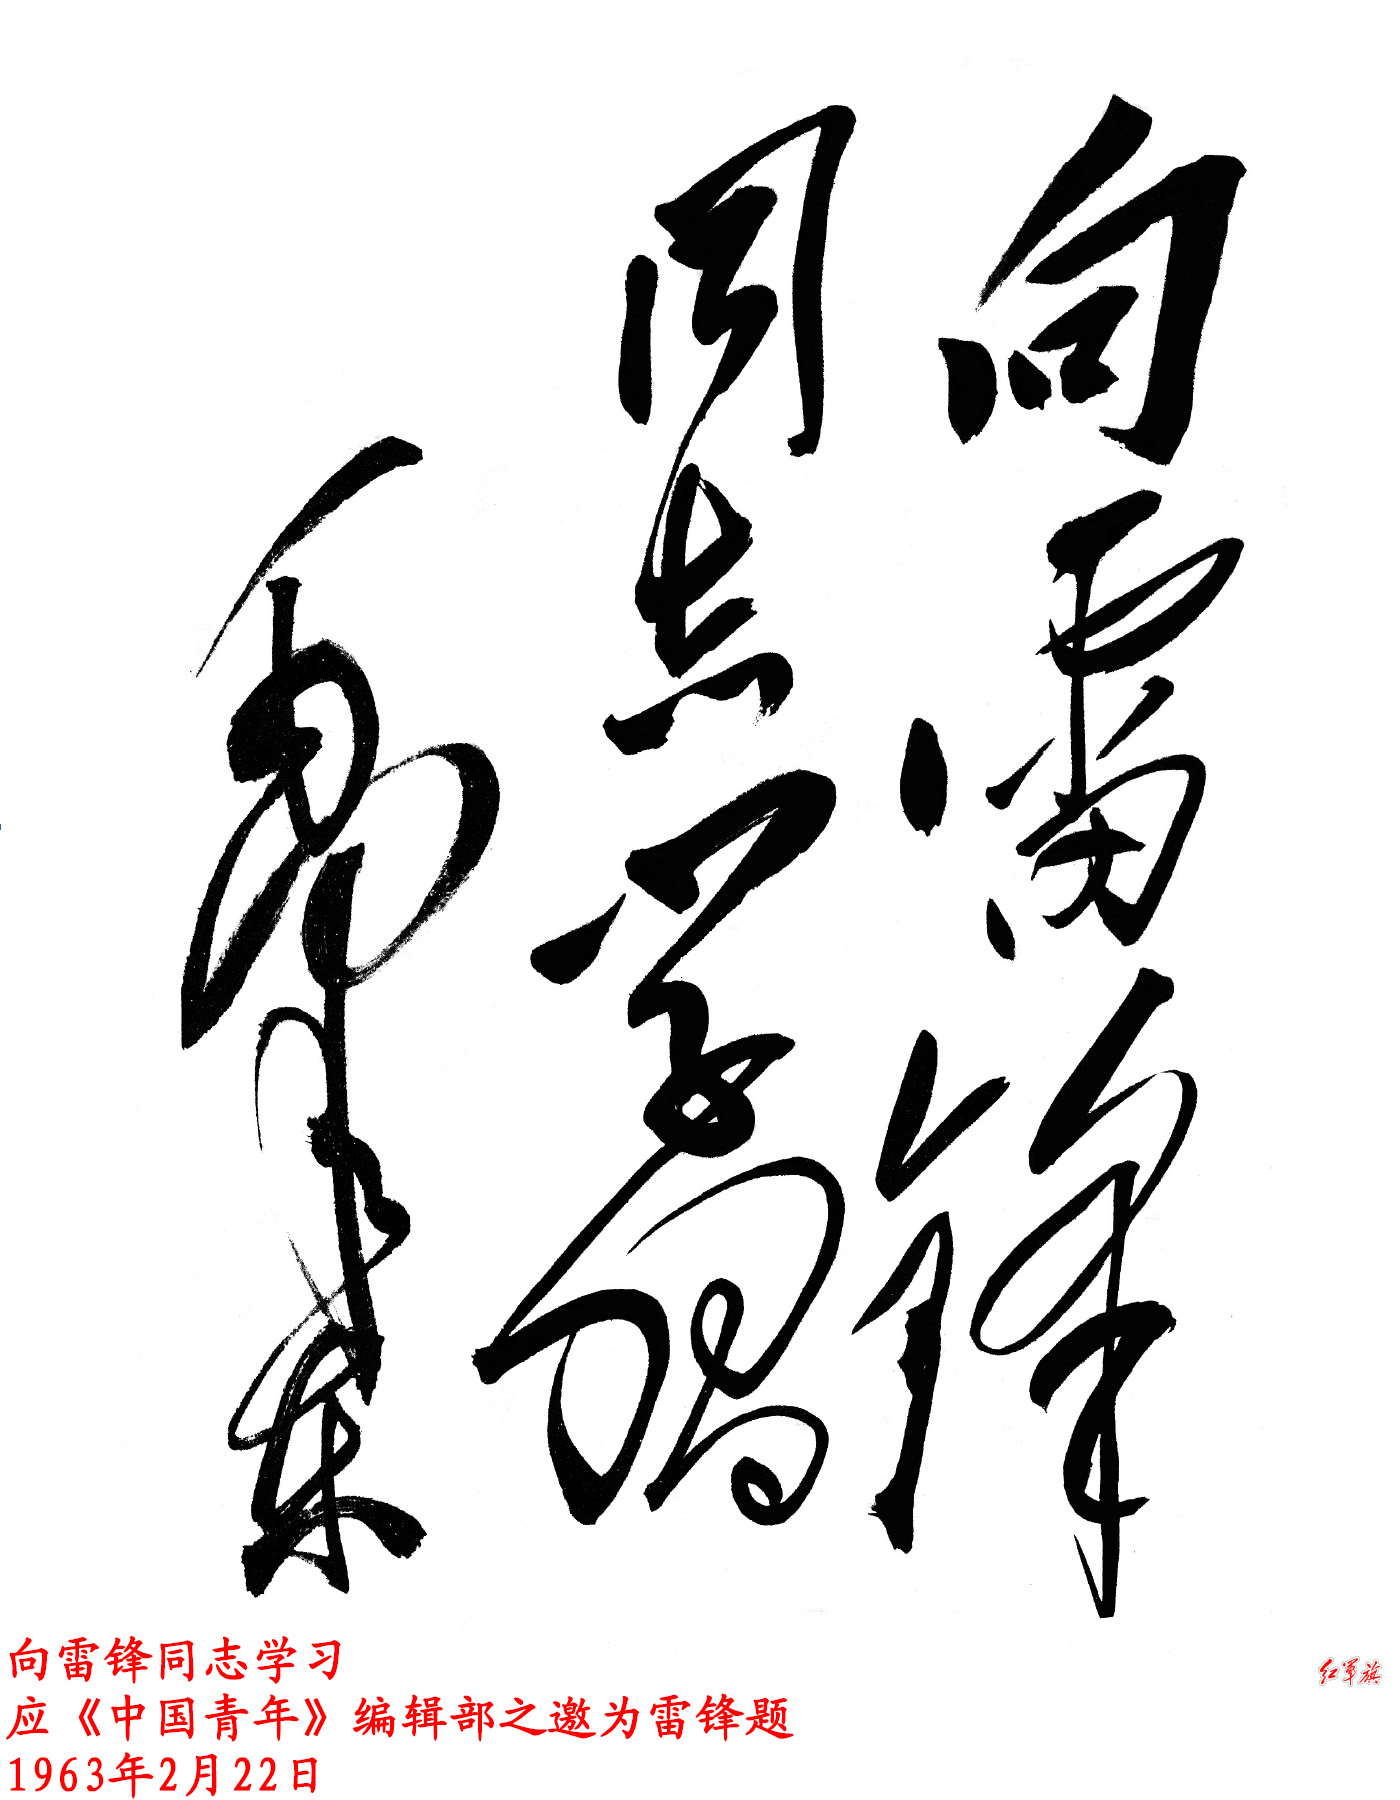 向雷锋
同志学习
毛泽东
向雷锋同志学习
应《中国青年》编辑部之邀为雷锋题
1963年2月22日
红军旗